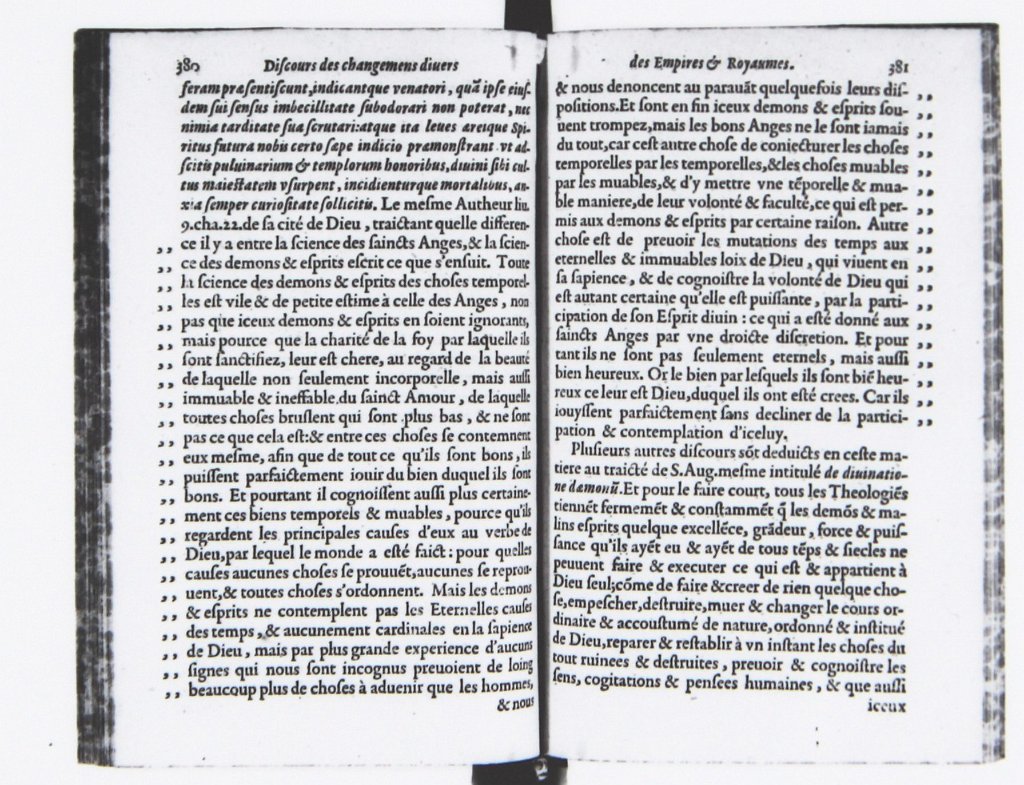 380 Diſcours des changemens diuers
feram præſentiſcunt, indicantque venatori, quã ipſe eiuſ-
dem ſui ſenſus imbecillitate ſubodorari non poterat, nec
nimia tarditate ſua ſcrutari: atque ita leues aereique Spi-
ritus futura nobis certo ſæpe indicio præmonſtrant vt ad-
ſcitis puluinarium & templorum honoribus, diuini ſibi cul-
tus maieſtatem vſurpent, incidienturque mortalibus, an-
xia ſemper curioſitate ſollicitis. Le meſme Autheur liu.
9.cha.22.de ſa cité de Dieu, traictant quelle differen-
,, ce il y a entre la ſcience des ſaincts Anges, & la ſcien-
,, ce des demons & eſprits eſcrit ce que s'enſuit. Toute
,, la ſcience des demons & eſprits des choſes temporel-
,, les eſt vile & de petite eſtime à celle des Anges, non
,, pas que iceux demons & eſprits en ſoient ignorants,
,, mais pource que la charité de la foy par laquelle ils
,, ſont ſanctifiez, leur eſt chere, au regard de la beauté
,, de laquelle non ſeulement incorporelle, mais auſſi
,, immuable & ineffable, du ſainct Amour, de laquelle
,, toutes choſes bruſlent qui ſont plus bas, & ne ſont
,, pas ce que cela eſt: & entre ces choſes ſe contemnent
,, eux meſme, afin que de tout ce qu'ils ſont bons, ils
,, puiſſent parfaictement iouir du bien duquel ils ſont
,, bons. Et pourtant il cognoiſſent auſſi plus certaine-
,, ment ces biens temporels & muables, pource qu'ils
,, regardent les principales cauſes d'eux au verbe de
,, Dieu, par lequel le monde a eſté faict: pour quelles
,, cauſes aucunes choſes ſe prouuẽt, aucunes ſe reprou-
,, uent, & toutes choſes s'ordonnent. Mais les demons
,, & eſprits ne contemplent pas les Eternelles cauſes
,, des temps, & aucunement cardinales en la ſapience
,, de Dieu, mais par plus grande experience d'aucuns
,, ſignes qui nous ſont incognus preuoient de loing
,, beaucoup plus de choſes à aduenir que les hommes,
& nous
des Empires & Royaumes. 381
& nous denoncent au parauãt quelquefois leurs diſ- ,,
poſitions. Et ſont en fin iceux demons & eſprits ſou- ,,
uent trompez, mais les bons Anges ne le ſont iamais ,,
du tout, car c'eſt autre choſe de coniecturer les choſes ,,
temporelles par les temporelles, & les choſes muables ,,
par les muables, & d'y mettre vne tẽporelle & mua- ,,
ble maniere, de leur volonté & faculté, ce qui eſt per- ,,
mis aux demons & eſprits par certaine raiſon. Autre ,,
choſe eſt de preuoir les mutations des temps aux ,,
eternelles & immuables loix de Dieu, qui viuent en ,,
ſa ſapience, & de cognoiſtre la volonté de Dieu qui ,,
eſt autant certaine qu'elle eſt puiſſante, par la parti- ,,
cipation de ſon Eſprit diuin: ce qui a eſté donné aux ,,
ſaincts Anges par vne droicte diſcretion. Et pour ,,
tant ils ne ſont pas ſeulement eternels, mais auſſi ,,
bien heureux. Or le bien par leſquels ils ſont biẽ heu- ,,
reux ce leur eſt Dieu, duquel ils ont eſté crees. Car ils ,,
iouyſſent parfaictement ſans decliner de la partici- ,,
pation & contemplation d'iceluy.
Pluſieurs autres diſcours sõt deduicts en ceſte ma-
tiere au traicté de S.Aug.meſme intitulé de diuinatio-
ne dæmonũ. Et pour le faire court, tous les Theologiẽs
tiennẽt fermemẽt & conſtammẽt q̃ les demõs & ma-
lins eſprits quelque excellẽce, grãdeur, force & puiſ-
ſance qu'ils ayẽt eu & ayẽt de tous tẽps & ſiecles ne
peuuent faire & executer ce qui eſt & appartient à
Dieu ſeul; cõme de faire & creer de rien quelque cho-
ſe, empeſcher, deſtruire, muer & changer le cours or-
dinaire & accouſtumé de nature, ordonné & inſtitué
de Dieu, reparer & reſtablir à vn inſtant les choſes du
tout ruinees & deſtruites, preuoir & cognoiſtre les
ſens, cogitations & penſees humaines, & que auſſi
iceux